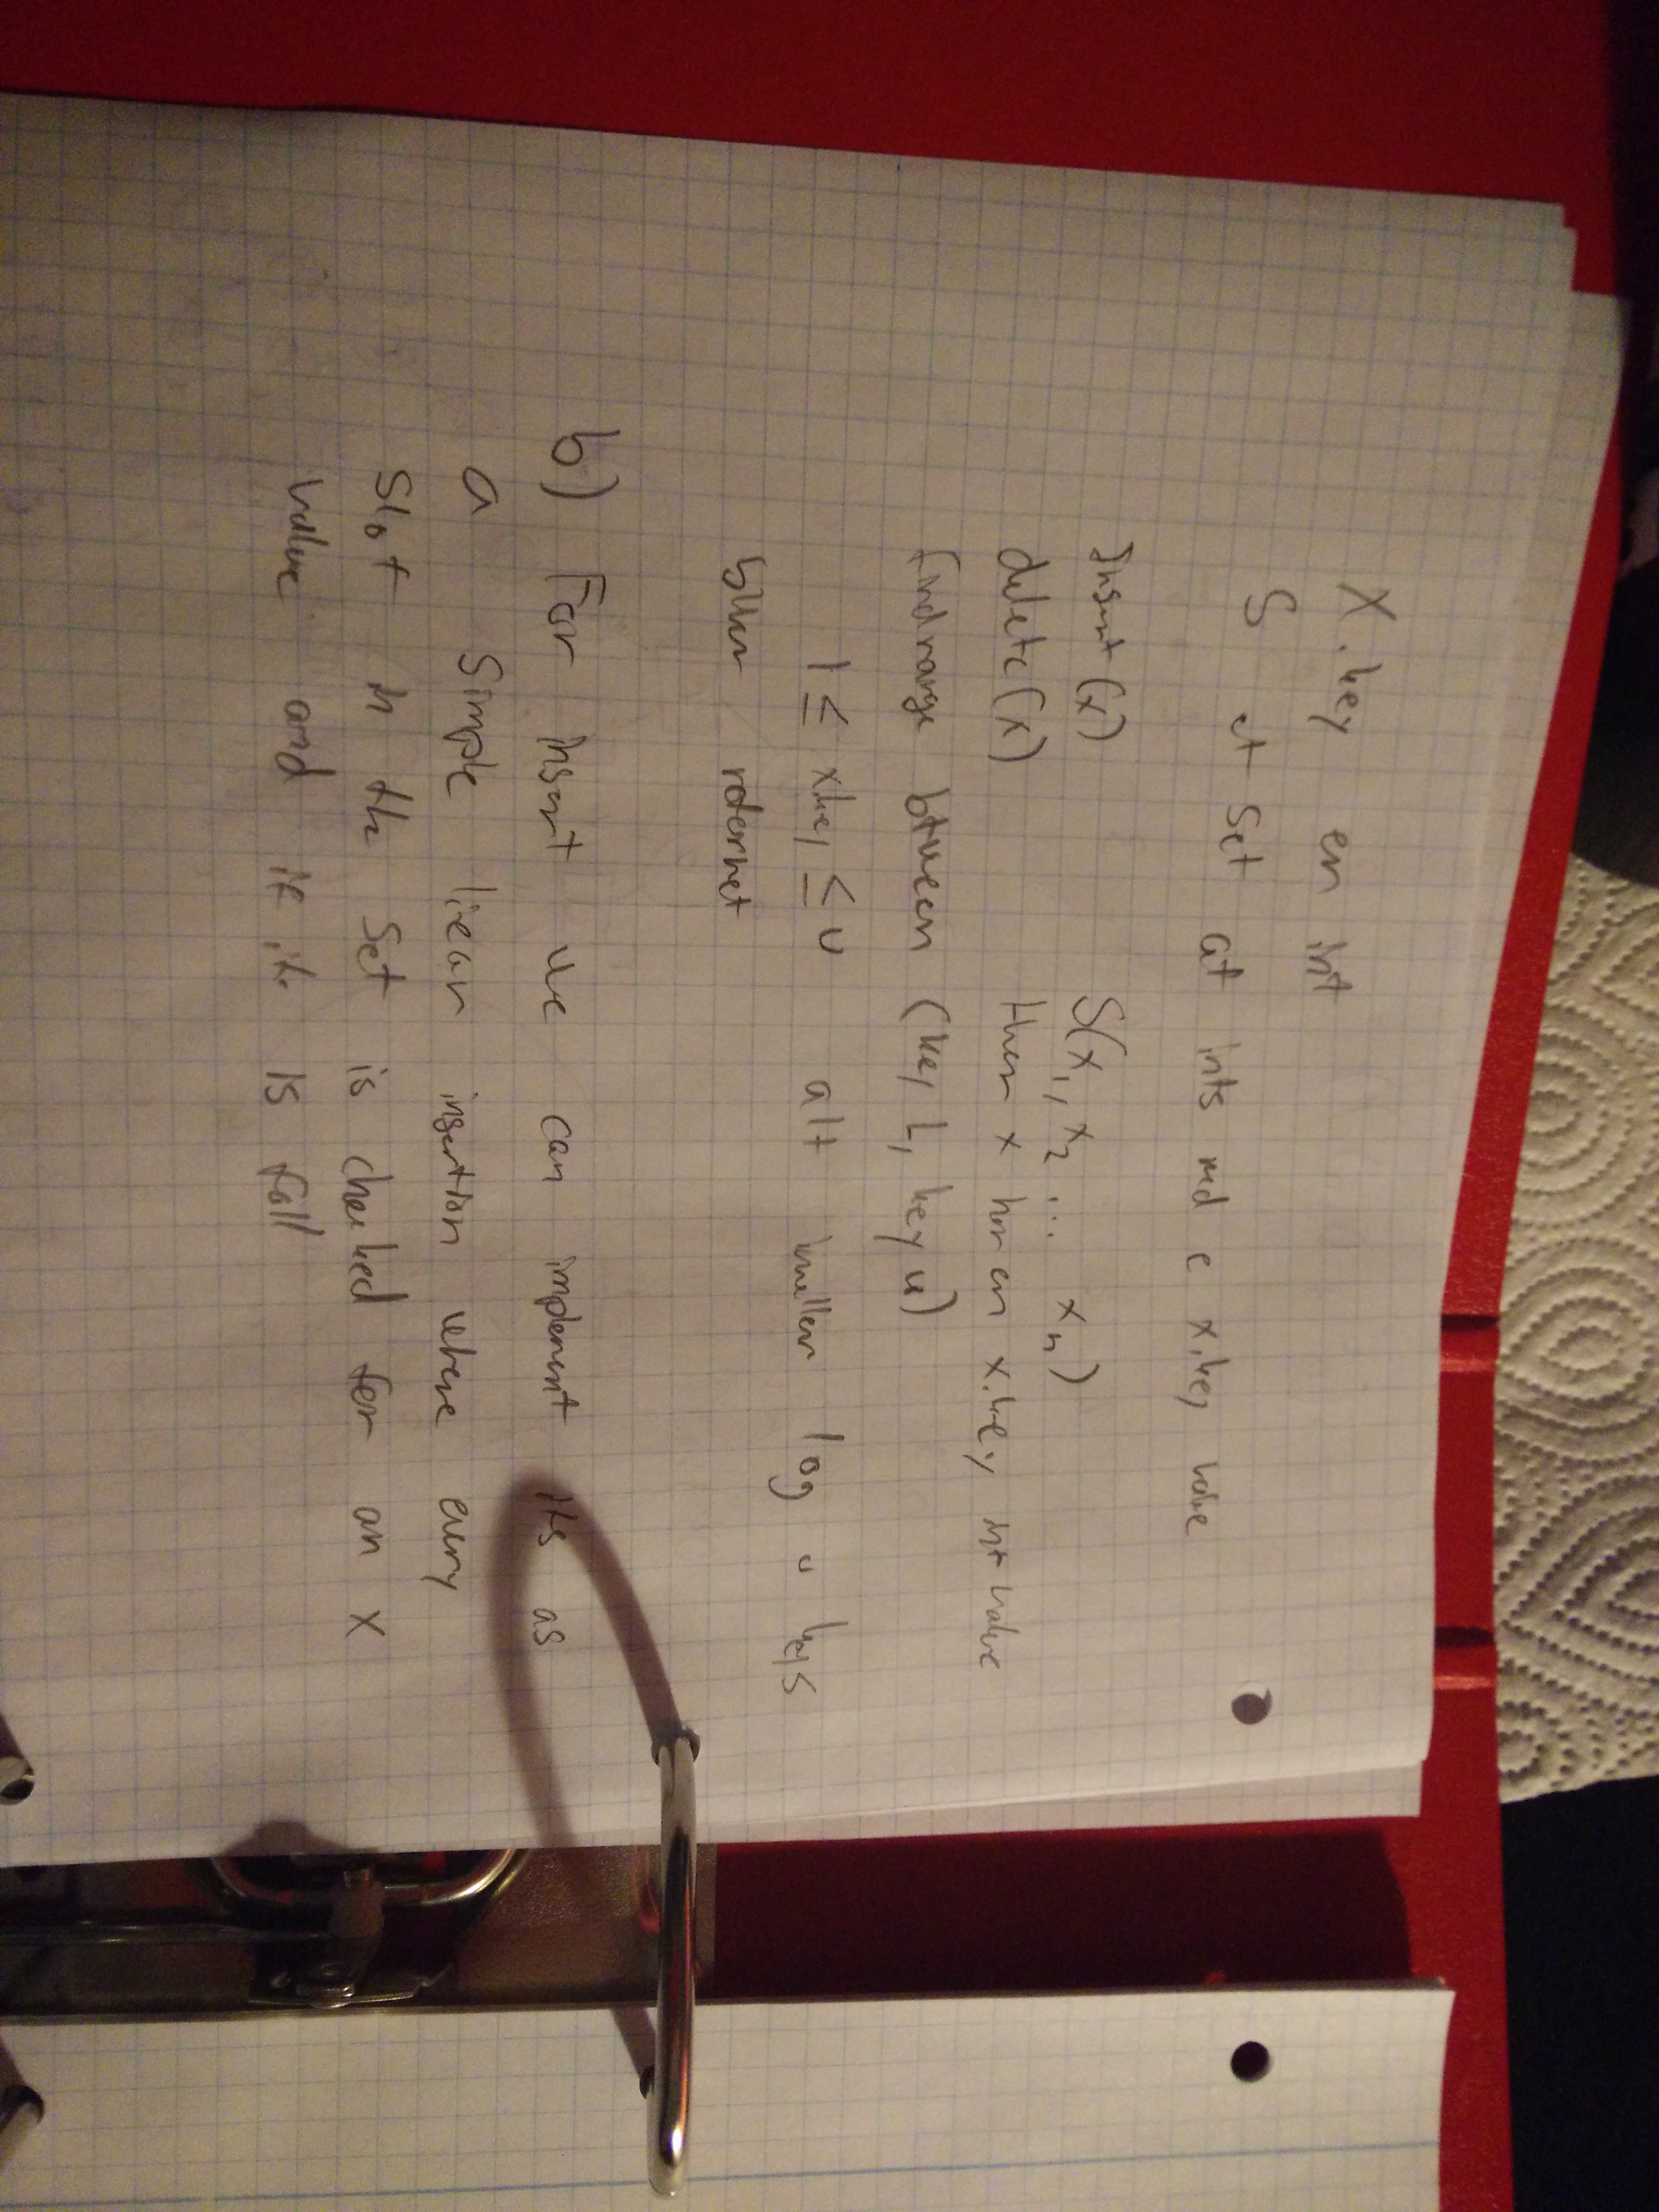 X.key en int
S et Set af ints med e x.key value
Insert(x) S(x₁, x₂ ... xₙ)
delete(x) hver x har en x.key int value
findrange btween (key L, key u)
l ≤ x.key ≤ u alt imellem l og u keys
bliver returnet
b) For insert we can implement its as
a Simple linear insertion where every
Slot in the Set is checked for an x
value and if it is full